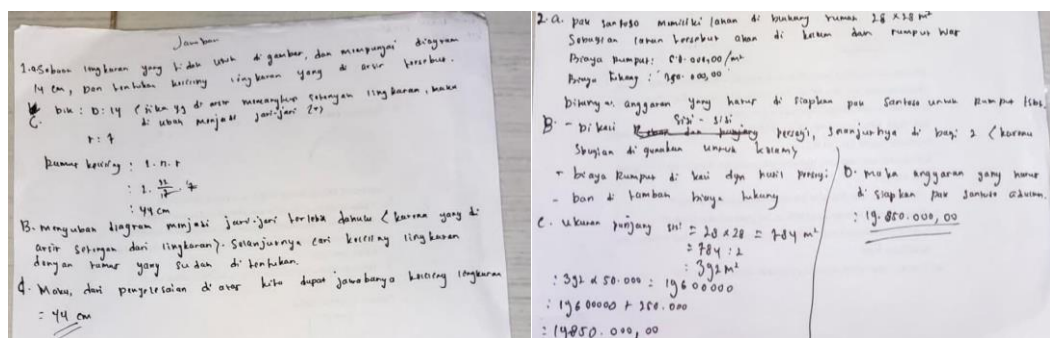 Jawaban
1.a. Sebuah lingkaran yang tidak utuh di gambar, dan mempunyai diagram
14 cm, Dan tentukan keliling lingkaran yang di arsir tersebut.
C. Dik : D : 14 ( jika yg di arsir mencangkup setengah lingkaran, maka
di ubah menjadi jari-jari (r)
r : 7
Rumus keliling : 2. π. r
: 2. 22 7
: 44 cm
B. mengubah diagram menjadi jari-jari terlebih dahulu < karena yang di
arsir setengah dari lingkaran>. Selanjutnya cari keliling lingkaran
dengan rumus yang sudah di tentukan.
d. Maka, dari penyelesaian di atas kita dapat jawabanya keliling lingkaran
= 44 cm
2.a. pak santoso memiliki lahan di bukang rumah 28 x 28 m²
Sebagian lahan tersebut akan di kolam dan rumput
Biaya Rumput: 50.000,00/m²
Biaya tukang : 250.000,00
anggaran yang harus di siapkan pak santoso untuk rumput
B - Di kali sisi - sisi persegi, selanjutnya di bagi 2 < karena
Sbagian di gunakan untuk kolam>
- biaya rumput di kali dgn hasil persegi
- dan di tambah biaya tukang
C. ukuran panjang sisi = 28 x 28 = 784 m²
= 784 : 2
: 392 m²
: 392 x 50.000 = 19600000
: 19600000 + 250.000
: 19850.000,00
D. maka anggaran yang harus
di siapkan pak santoso adalah.
: 19.850.000,00